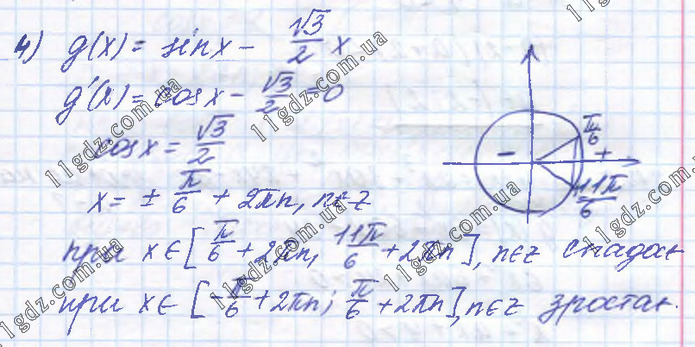 4) g(x) = sinx - √3/2 x
g'(x) = cosx - √3/2 = 0
cosx = √3/2
x = ± π/6 + 2πn, n∈z
при x∈[π/6 + 2πn, 11π/6 + 2πn], n∈z спадає
при x∈[-π/6 + 2πn; π/6 + 2πn], n∈z зростає.
π/6
- +
11π/6
11gdz.com.ua
11gdz.com.ua
11gdz.com.ua
11gdz.com.ua
11gdz.com.ua
11gdz.com.ua